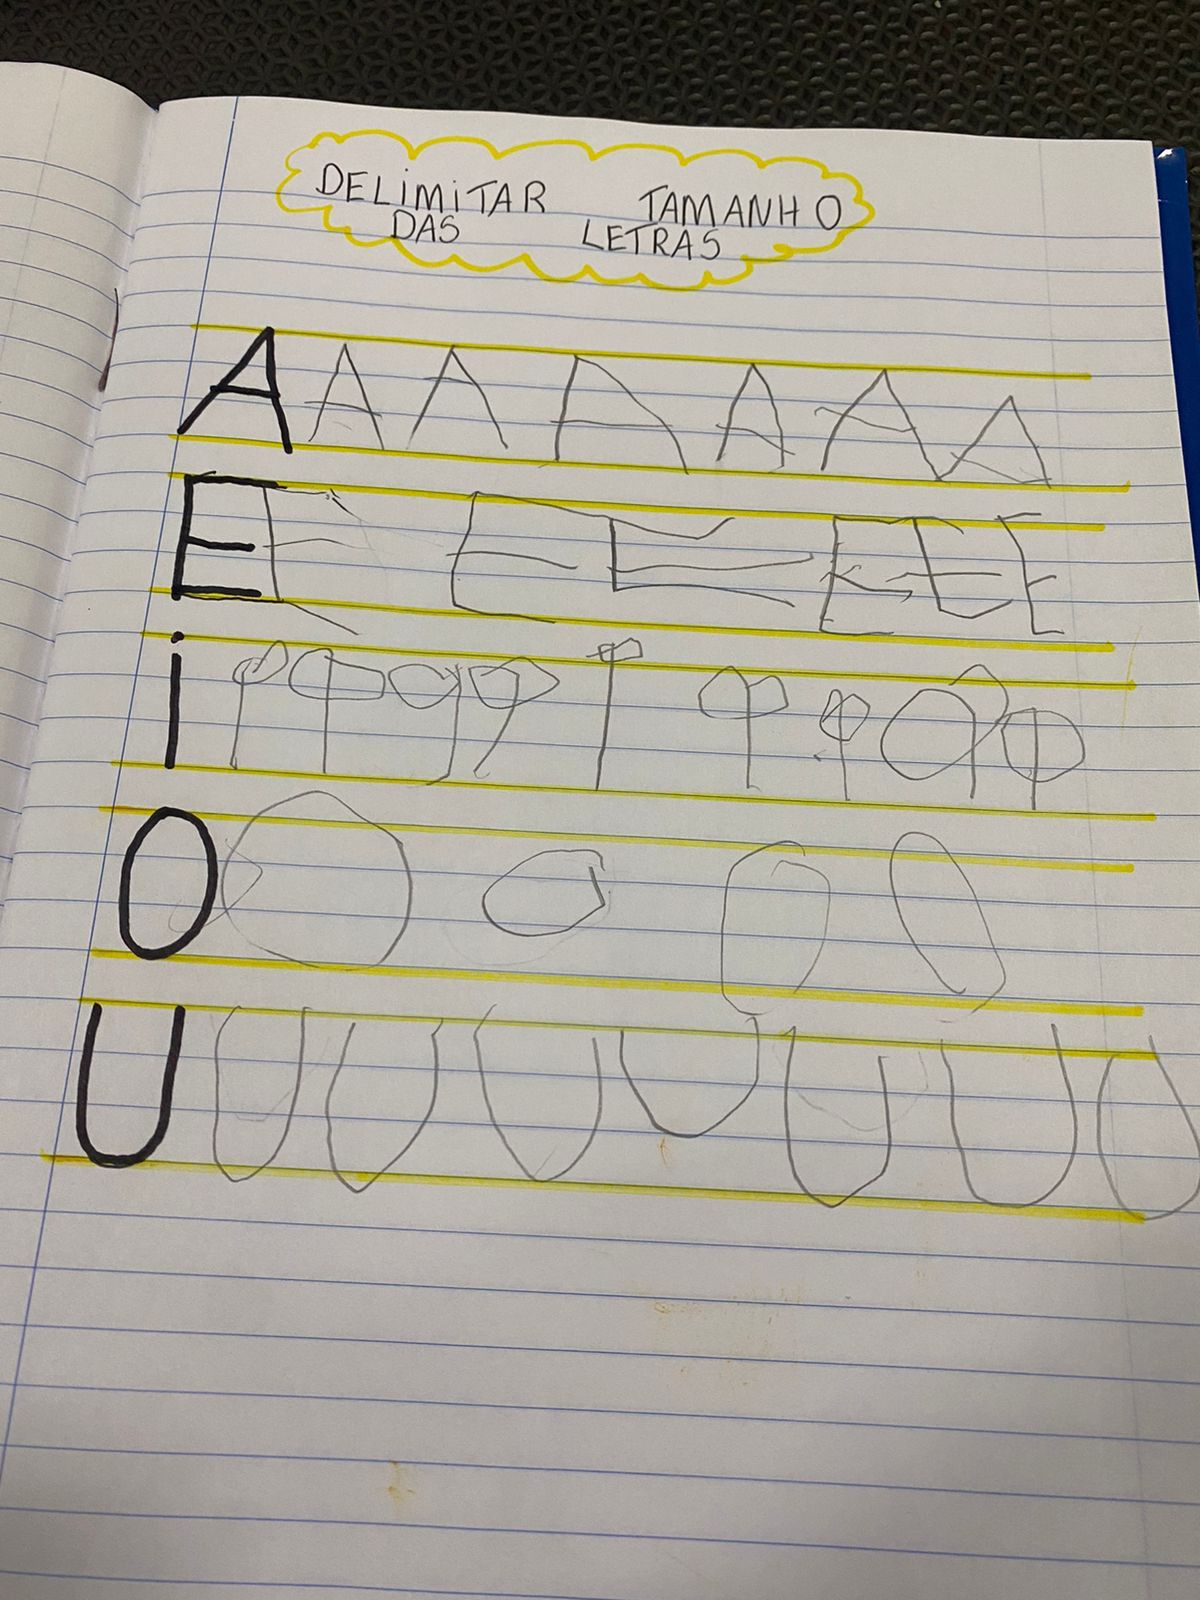 DELiMiTAR TAMANHO
DAS LETRAS
A A A A A A A
E E E E E E E
i
O O O O O
U U U U U U U U